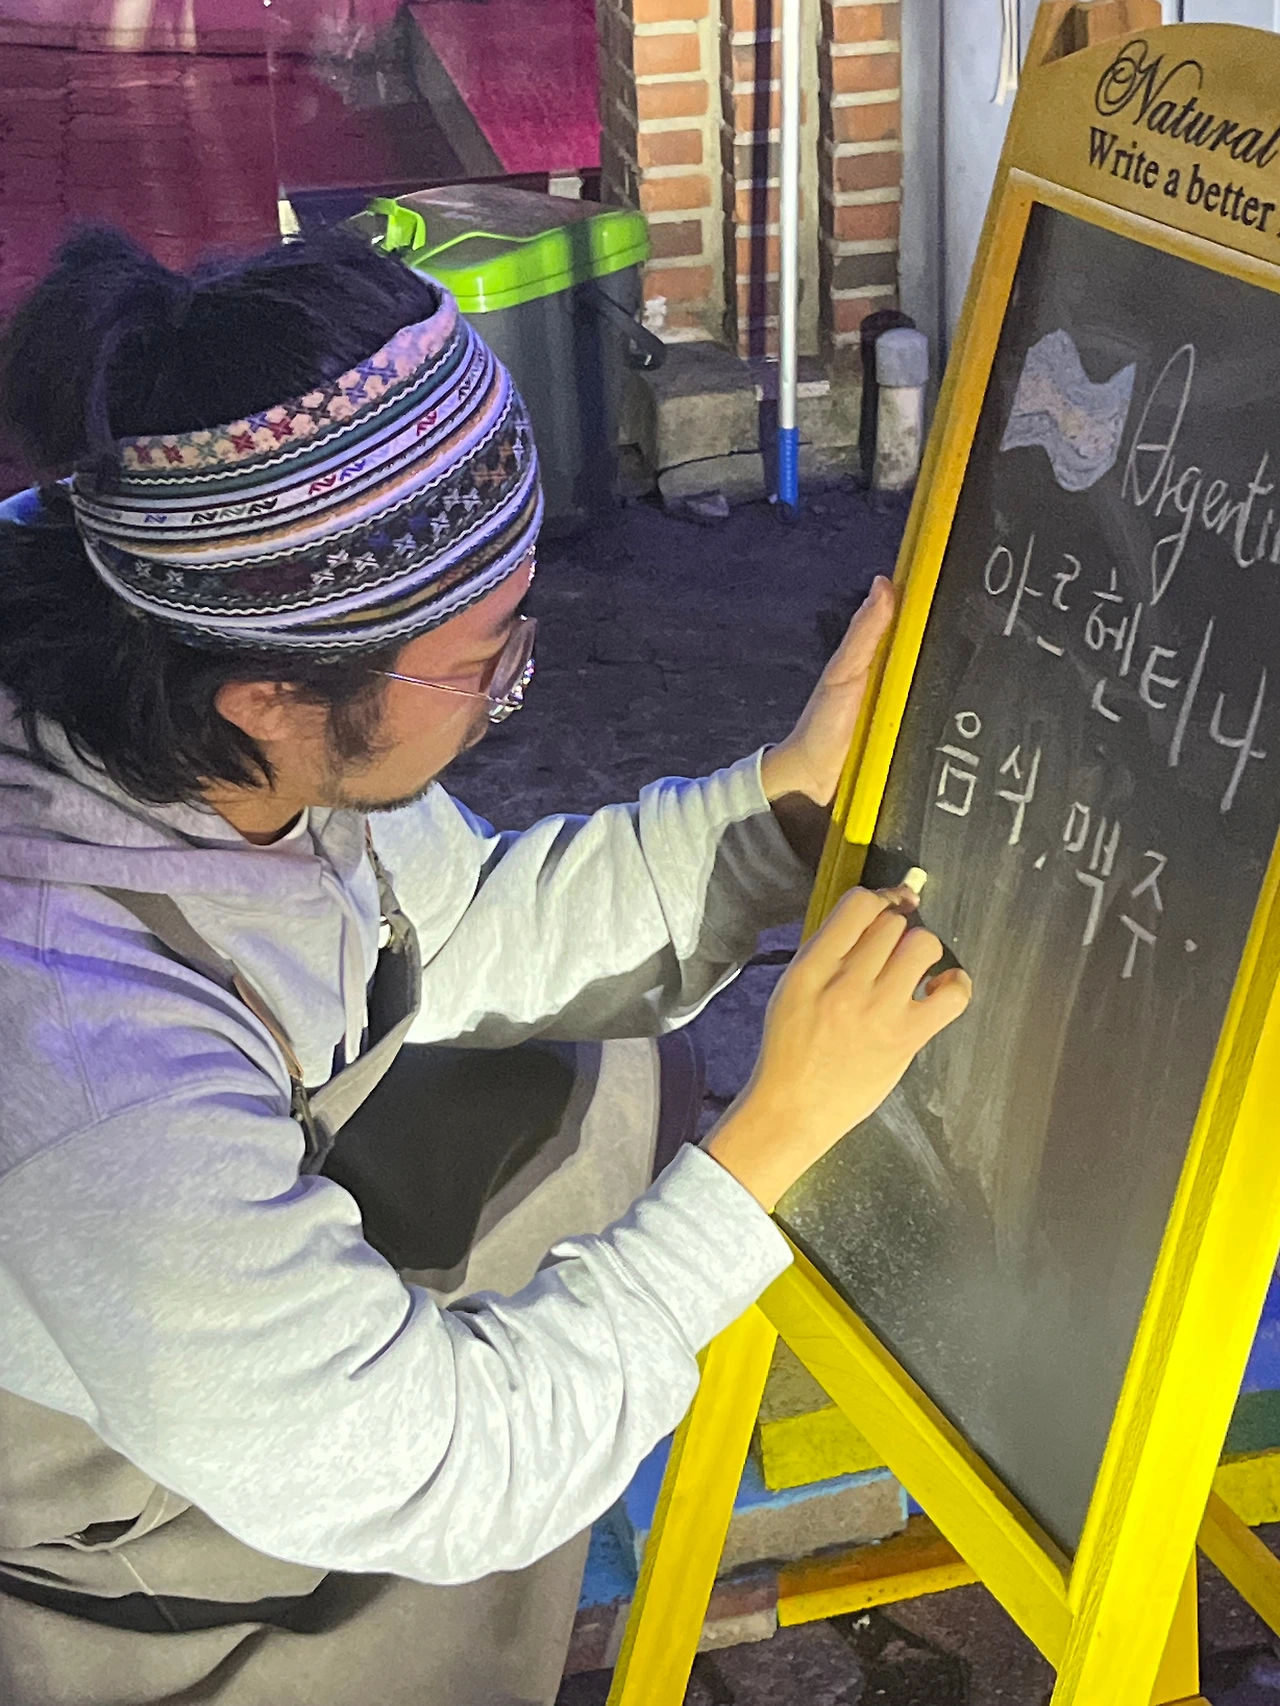 Natural
Write a better
Argentin
아르헨티나
음식, 맥주.